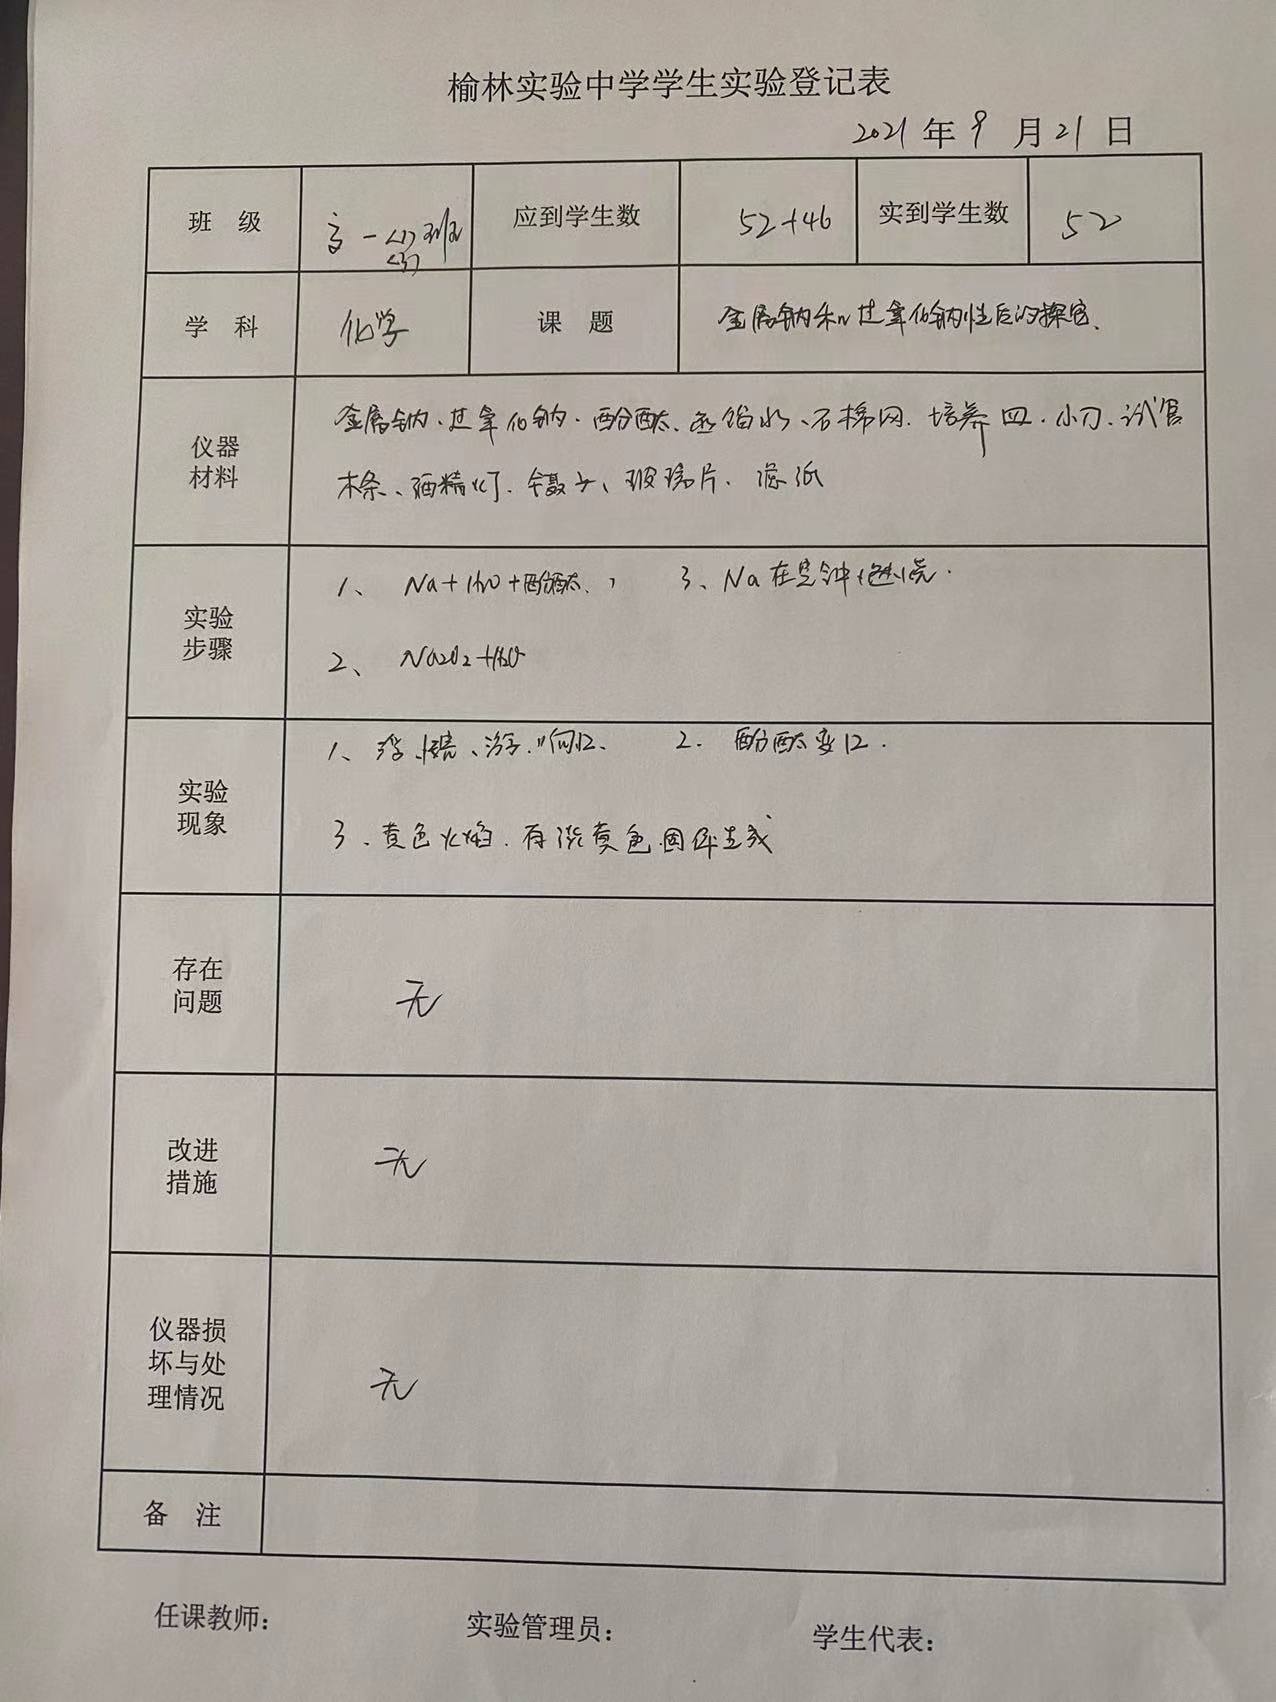 榆林实验中学学生实验登记表
2021 年 9 月 21 日
班 级 高一<1>班 <3> 应到学生数 52+46 实到学生数 52
学 科 化学 课 题 金属钠和过氧化钠性质的探究、
仪器 材料
金属钠、过氧化钠、酚酞、蒸馏水、石棉网、培养皿、小刀、试管
木条、酒精灯、镊子、玻璃片、滤纸
实验 步骤
1、 Na+H2O+酚酞、, 3、Na在空气中燃烧.
2、 Na2O2+H2O
实验 现象
1、浮、熔、游、响、红、 2. 酚酞变红.
3、黄色火焰、有淡黄色固体生成
存在 问题
无
改进 措施
无
仪器损 坏与处 理情况
无
备 注
任课教师: 实验管理员: 学生代表: